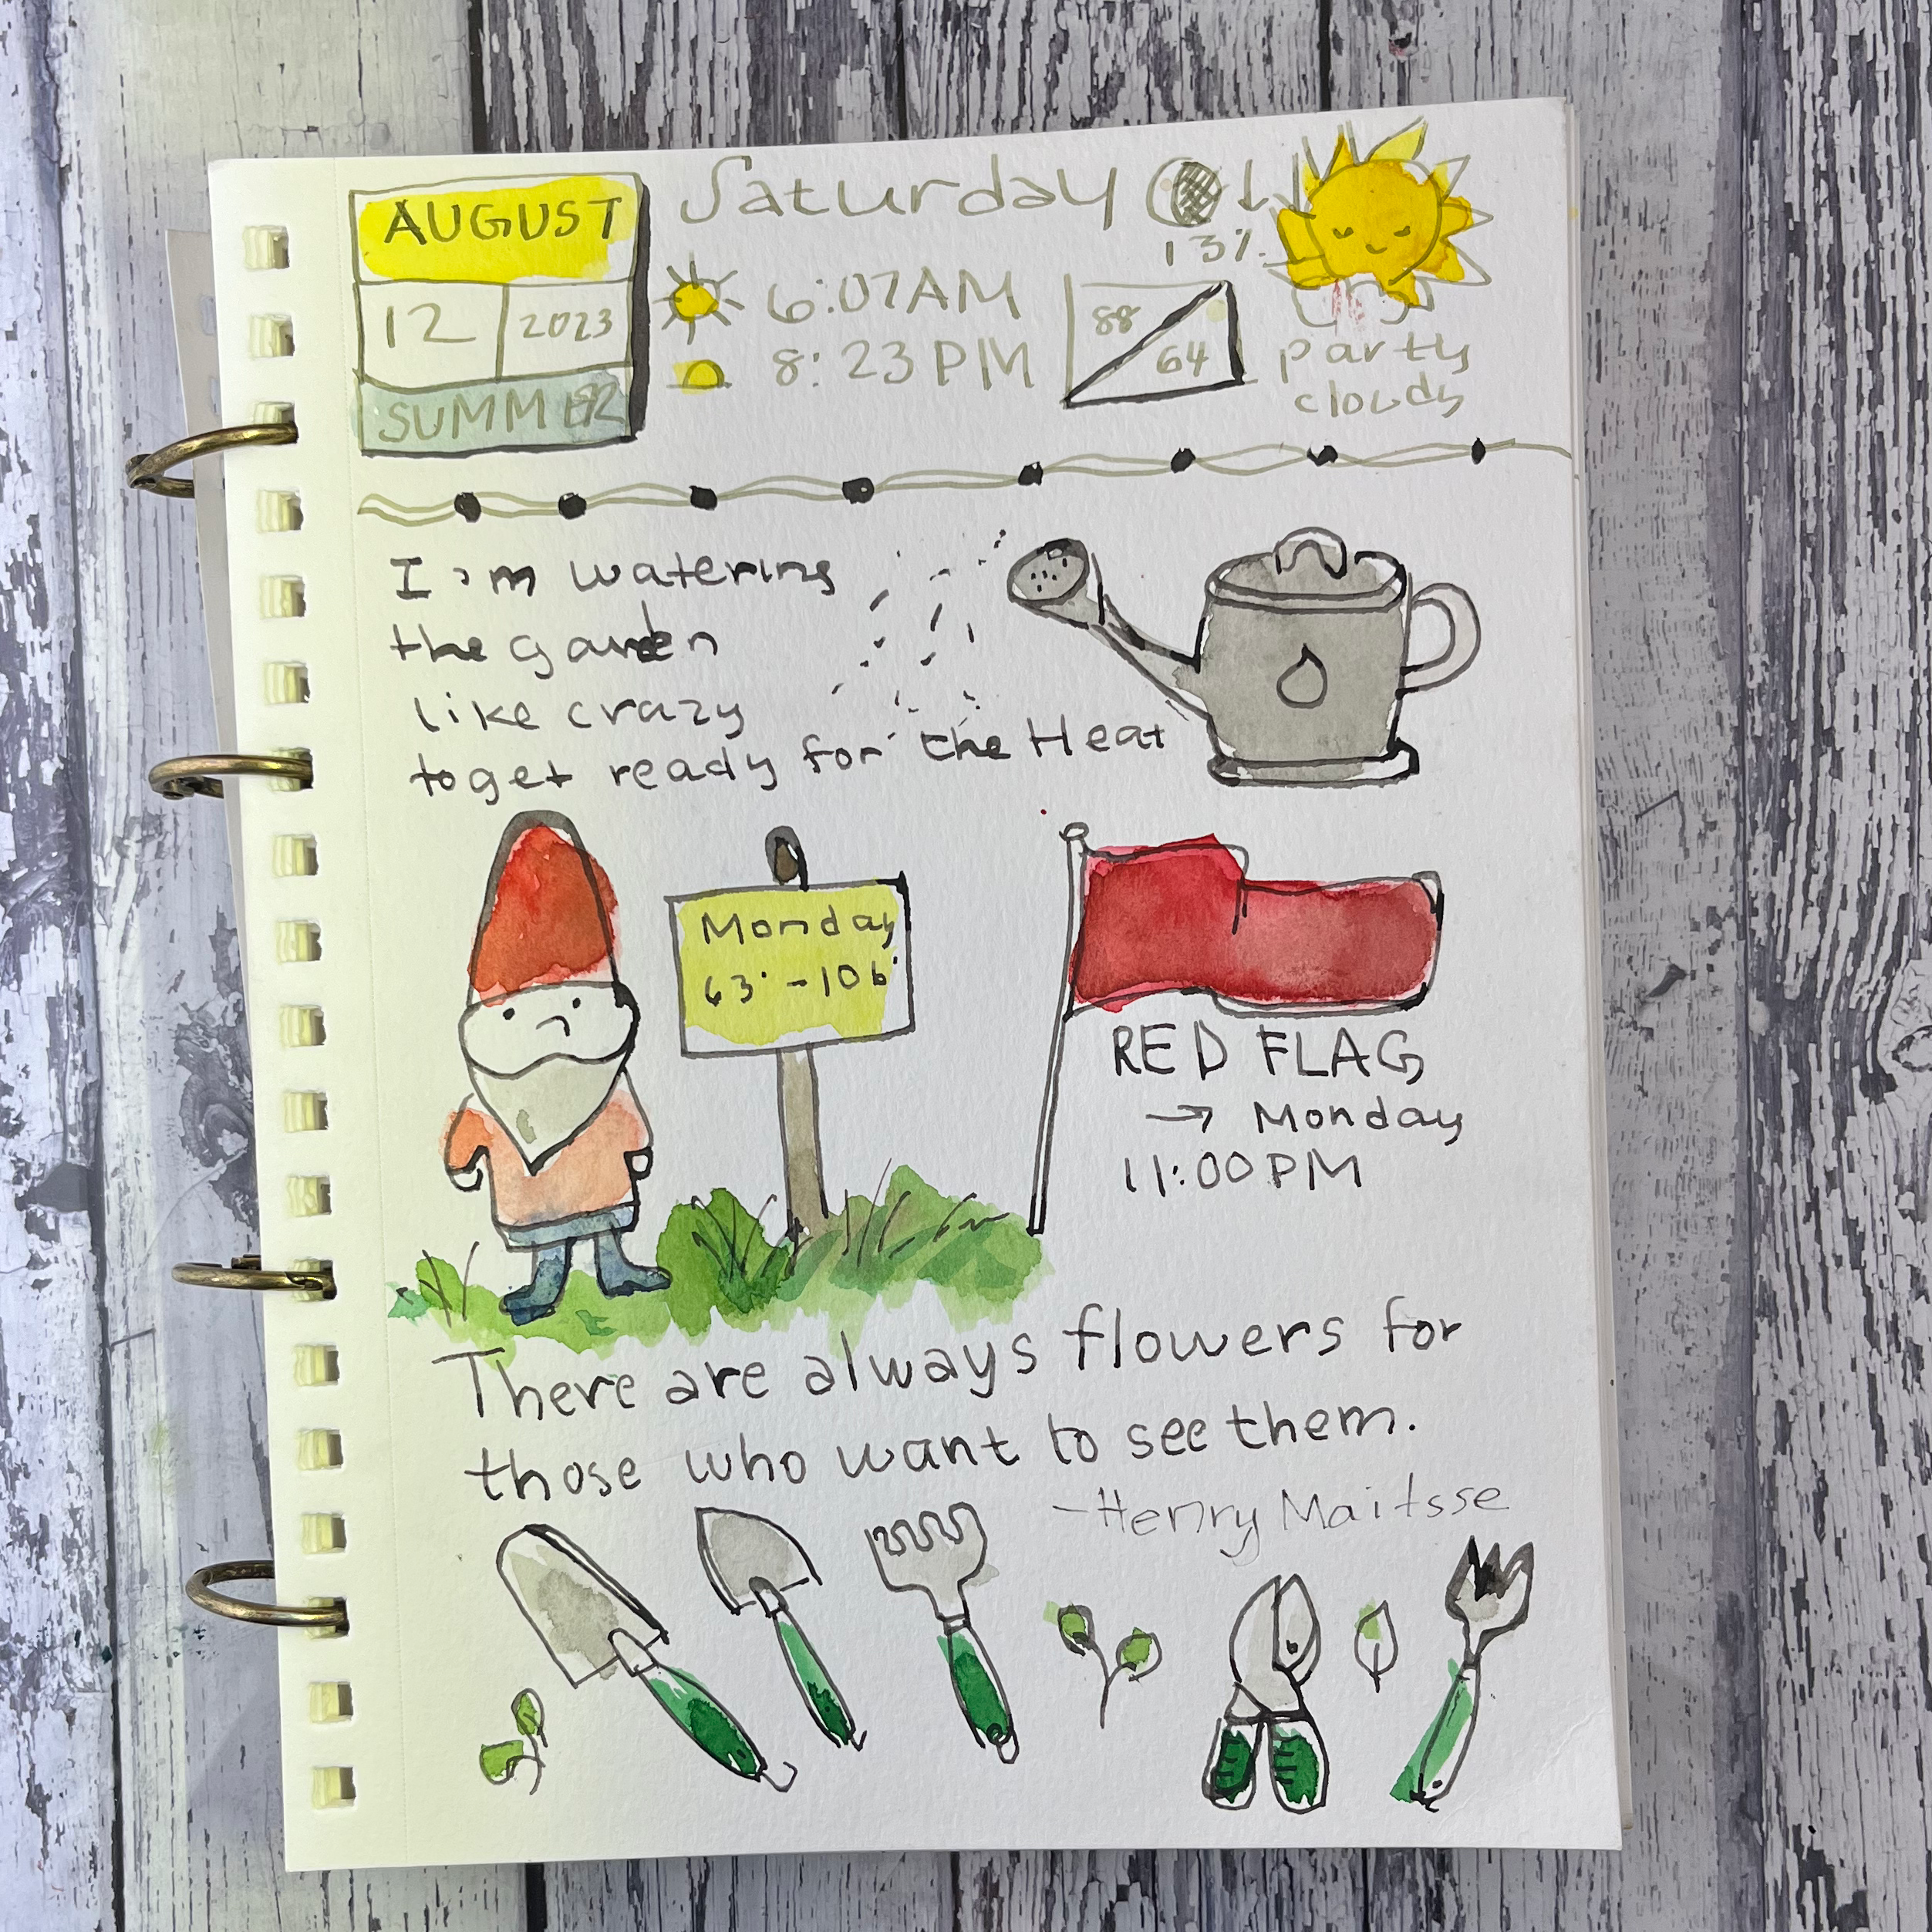 AUGUST
12 2023
SUMMER
Saturday
13%
6:07AM
8:23PM
88
64
party
cloudy
I am watering
the garden
like crazy
to get ready for the Heat
Monday
63° - 106°
RED FLAG
→ Monday
11:00PM
There are always flowers for
those who want to see them.
-Henry Maitsse